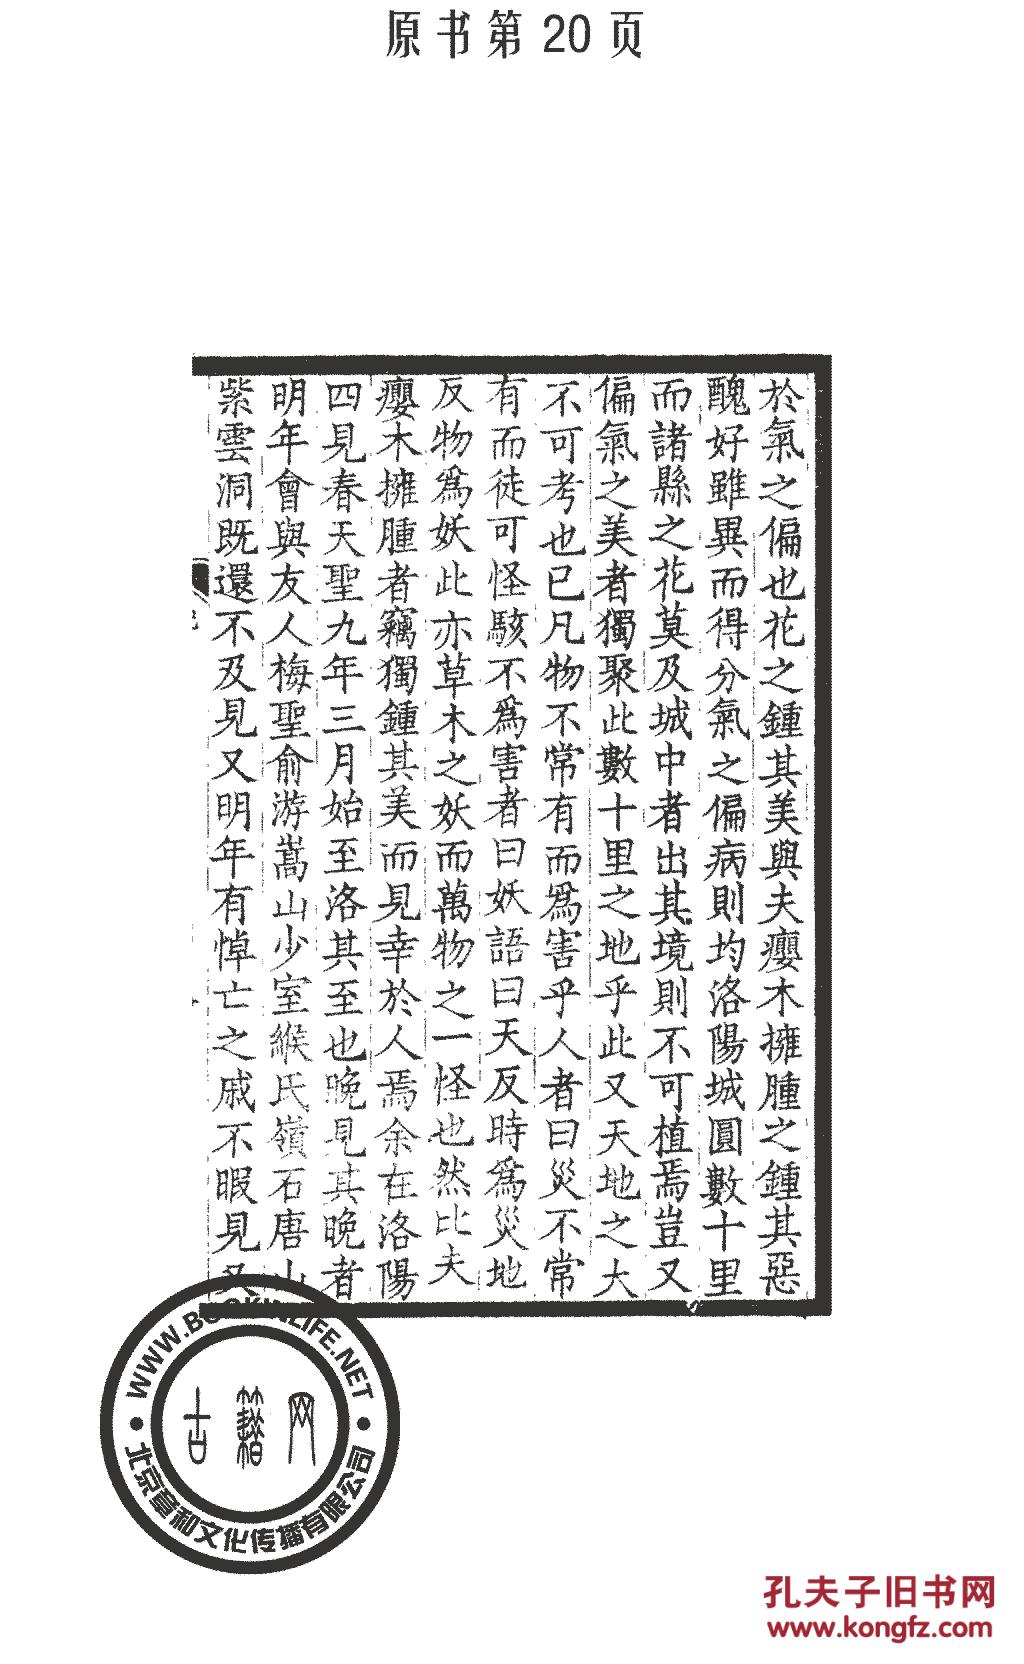 原书第20页
於氣之偏也花之鍾其美與夫癭木擁腫之鍾其惡
醜好雖異而得分氣之偏病則均洛陽城圓數十里
而諸縣之花莫及城中者出其境則不可植焉豈又
偏氣之美者獨聚此數十里之地乎此又天地之大
不可考也已凡物不常有而爲害乎人者曰災不常
有而徒可怪駭不爲害者曰妖語曰天反時爲災地
反物爲妖此亦草木之妖而萬物之一怪也然比夫
癭木擁腫者竊獨鍾其美而見幸於人焉余在洛陽
四見春天聖九年三月始至洛其至也晚見其晚者
明年會與友人梅聖俞游嵩山少室緱氏嶺石唐山
紫雲洞既還不及見又明年有悼亡之戚不暇見又
WWW.BOOKINLIFE.NET
古籍网
北京章和文化传播有限公司
孔夫子旧书网
www.kongfz.com